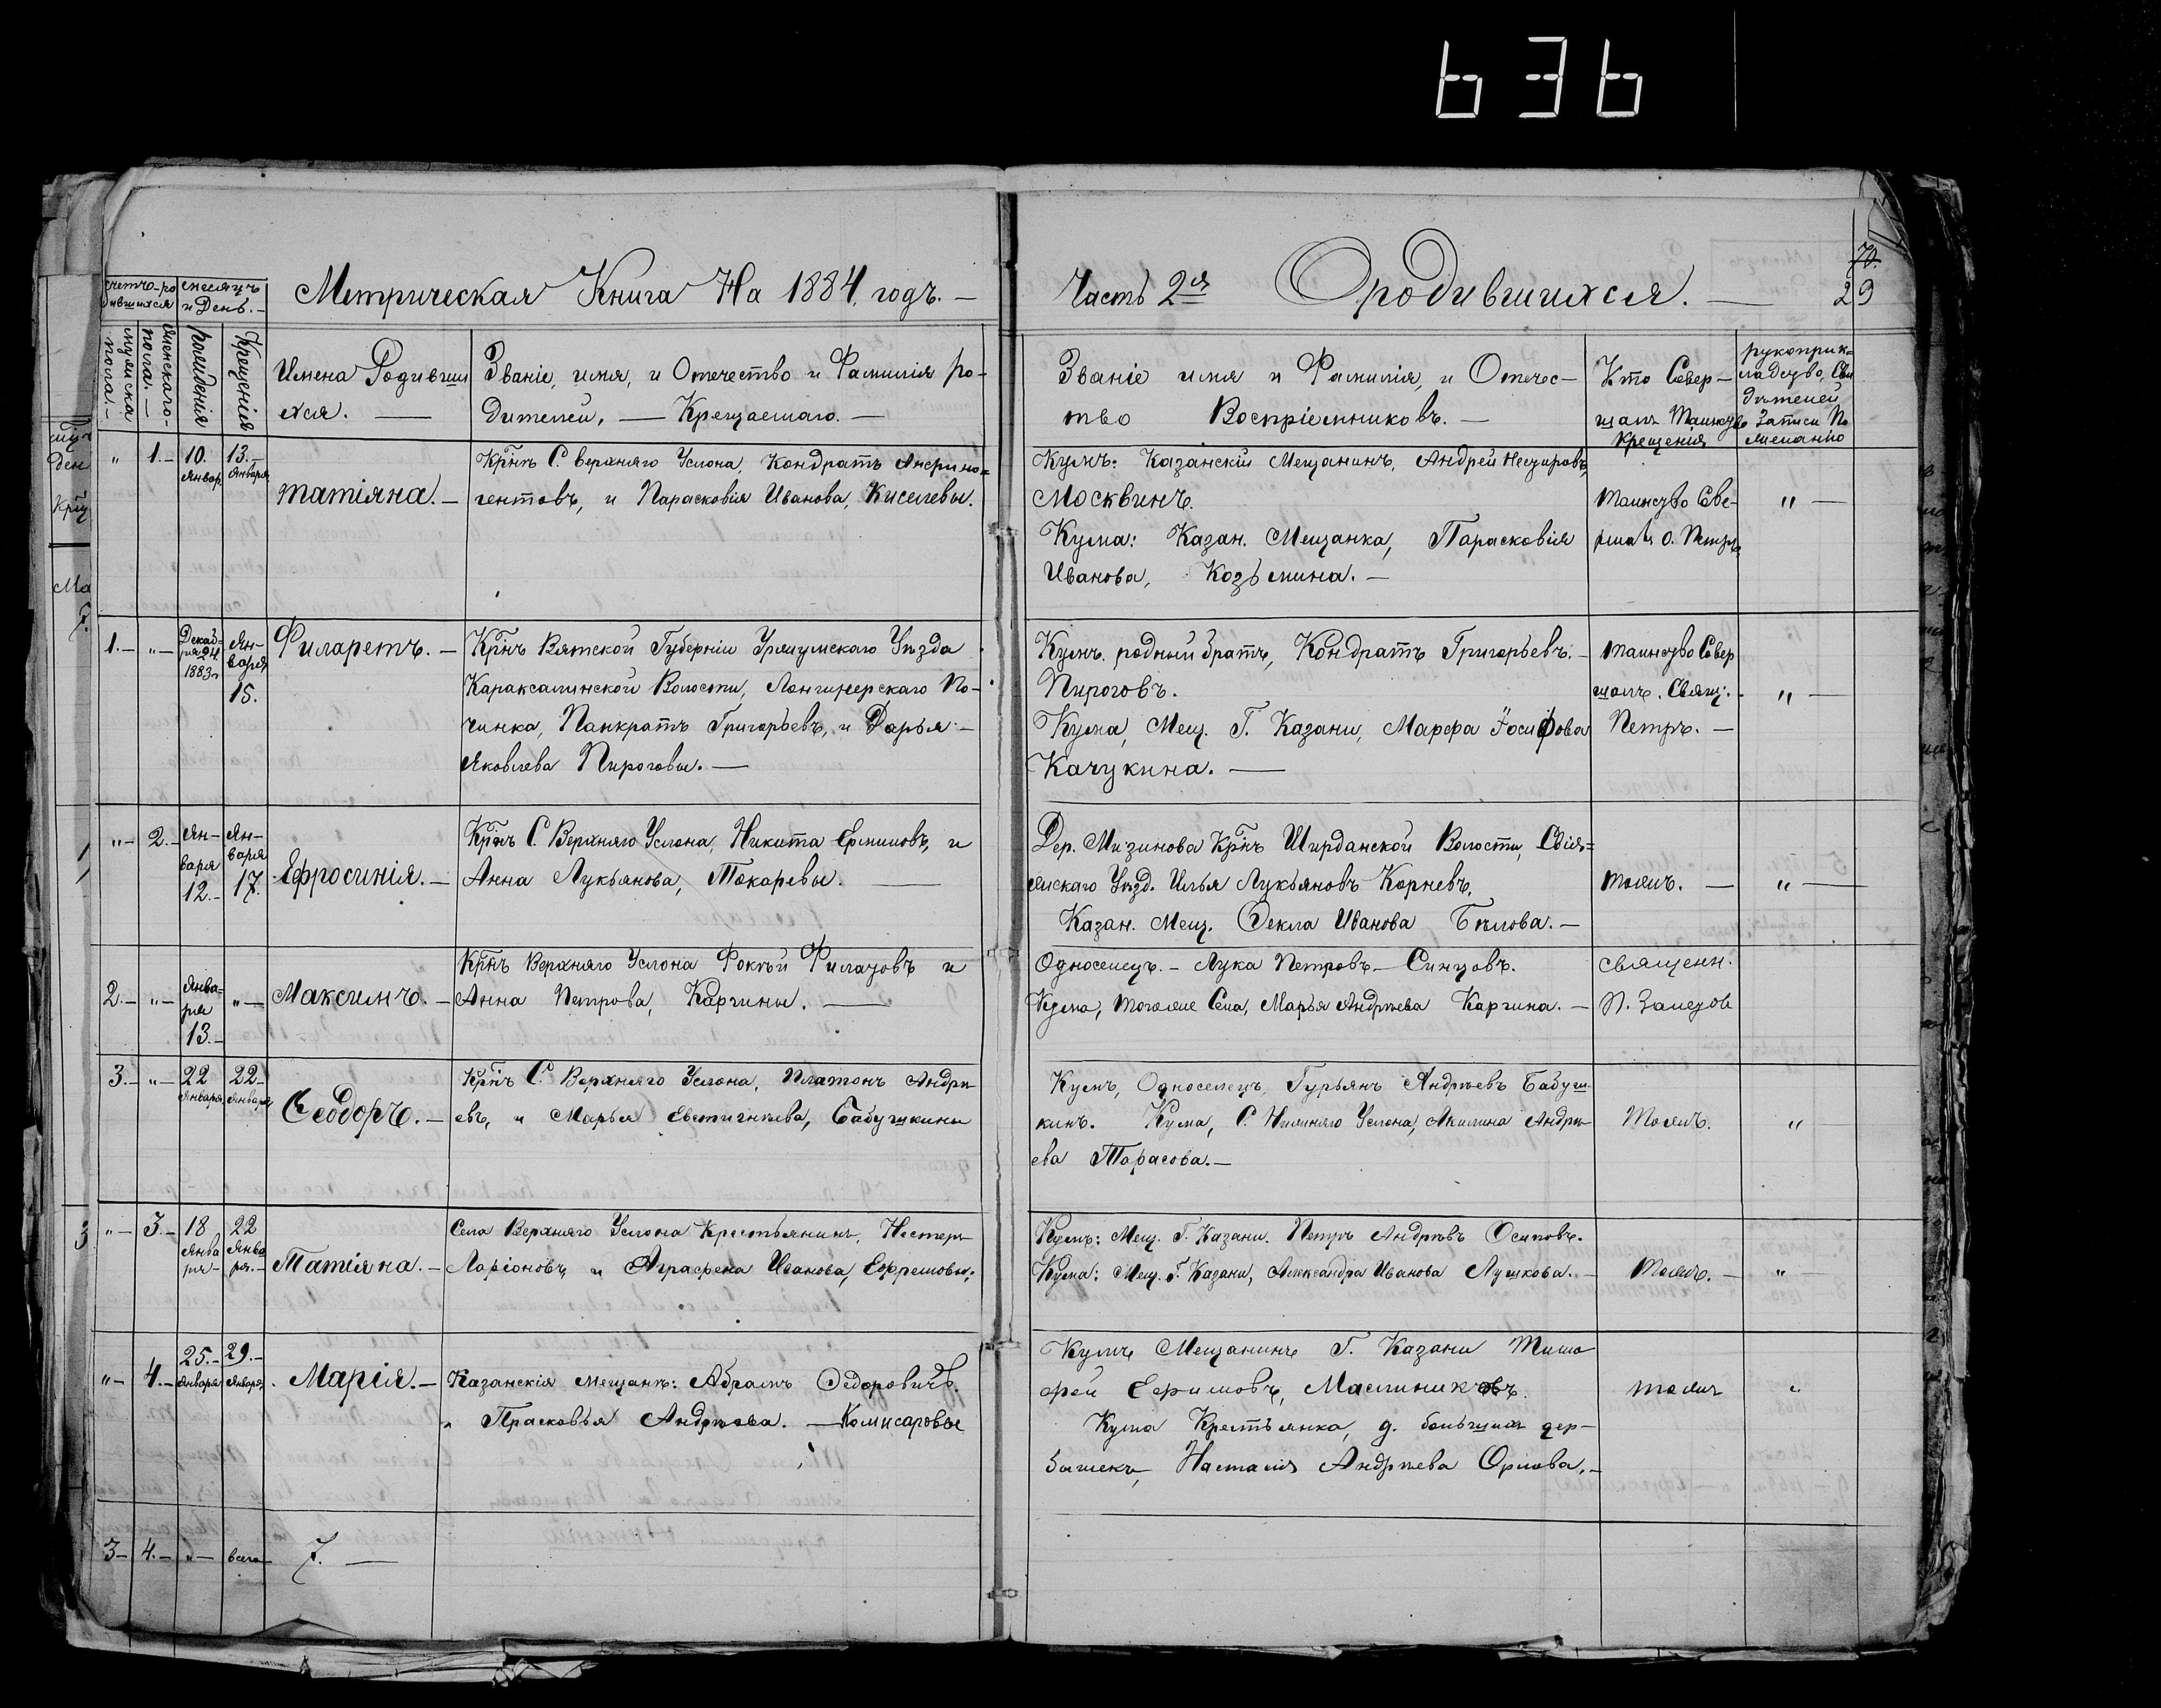 636
70.
29
счетъ ро
дившихся
месяцъ
и День.-
Метрическая Книга На 1884. годъ. -
Часть 2ая О родившихся. -
мужска
пола. -
женскаго
пола. -
рождения
Крещенія
Имена Родивши
ихся. -
Званіе, имя, и Отечество и Фамилія ро-
дителей, - Крещаемаго. -
Званіе имя и Фамилія, и Отечес-
тво Воспріемниковъ. -
Кто Совер-
шалъ Таинство
Крещенія
рукоприк-
ладство, Сви
дѣтелей
Записи По
желанію
" 1.- 10. Январ. 13.- Января
Татіяна. -
Крнъ С. верхняго Услона, Кондратъ
гентовъ, и Парасковія Иванова, Киселевы.
Кумъ: Казанскій Мещанинъ, Андрей
Москвинъ.
Кума: Казан. Мещанка, Парасковія
Иванова, Козьмина. -
Таинство Сове-
ршалъ О. Петръ
" -
1.- "- Декаб-
ря 24.
1883 г.
Ян-
варя
15.
Филаретъ. -
Крнъ Вятской Губерніи Уржумскаго Уѣзда
Караксалинской Волости, Лонгинерскаго По-
чинка, Панкратъ Григорьевъ, и Дарья -
Яковлева Пироговы. -
Кумъ. родный братъ, Кондратъ Григорьевъ. -
Пироговъ.
Кума, Мещ. Г. Казани, Марфа Іосифова
Качукина. -
Таинство Совер
шалъ. Свящ.
Петръ. -
" -
"- 2.- Ян-
варя
12.-
Ян-
варя
17.
Ефросинія. -
Крнъ С. Верхняго Услона, Никита Ефимовъ, и
Анна Лукьянова, Токаревы. -
Дер. Мизинова Крнъ Ширданской Волости, Свія-
жскаго Уѣзд. Илья Лукьяновъ Корневъ.
Казан. Мещ. Фекла Иванова Бѣлова. -
Тожъ. -
" -
2.- "- Янва-
ря
13.-
"-
Максимъ. -
Крнъ Верхняго Услона Фокѣй Филатовъ и
Анна Петрова, Каргины. -
Односелецъ. - Лука Петровъ - Синцовъ.
Кума, тогоже Села, Марья Андрѣева Каргина. -
Священн.
П.
3.- "- 22 Января 22 Января
Ѳеодоръ. -
Крнъ С. Верхняго Услона, Платонъ Андрѣ
евъ, и Марья Евстигнѣева, Бабушкины
Кумъ, Односелецъ, Гурьянъ Андрѣевъ Бабуш-
кинъ. Кума, С. Нижняго Услона, Акилина Андрѣ
ева Тарасова. -
Тожъ.
"
"- 3.- 18
Янва
ря -
22
Янва
ря. -
Татіяна. -
Села Верхняго Услона Крестьянинъ, Нестеръ
Ларіоновъ, и Аграфена Иванова, Ефремовы;
Кумъ: Мещ. Г. Казани. Петръ Андрѣевъ Осиповъ.
Кума: Мещ. Г. Казани, Александра Иванова Лушкова. -
Тожъ. -
" -
"- 4.- 25.- Января 29.- Января
Марія. -
Казанскія мещанъ: Абрамъ Ѳедоровичъ.
и Прасковья Андрѣева. - Комисаровы
Кумъ Мещанинъ Г. Казани Тимо
фей Ефимовъ, Маслиниковъ.
Кума Крестьянка, д. большихъ дер-
бышекъ, Наталія Андрѣева Орлова. -
тожъ
"
3- 4.- "- всего 7. -